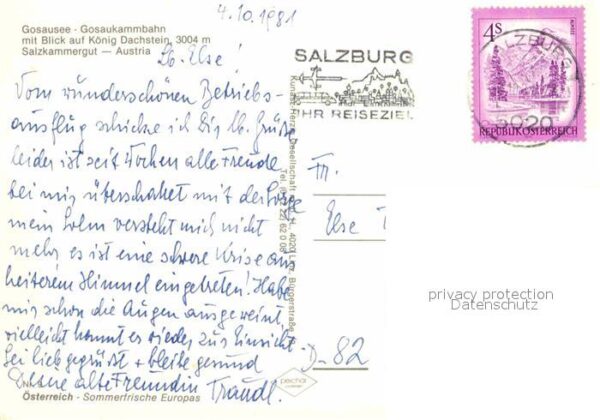 4.10.1981
Gosausee - Gosaukammbahn
mit Blick auf König Dachstein, 3004 m
Salzkammergut — Austria
Lb. Else!
Vom wunderschönen Betriebs-
ausflug schicke ich Dir lb. Grüße
leider ist seit Wochen alle Freude
bei mir überschattet mit der Sorge
mein Sohn versteht mich nicht
mehr es ist eine schwere Krise aus
heiterem Himmel eingetreten! Habe
mir schon die Augen ausgeweint,
vielleicht kommt es wieder zur Einsicht.
Sei lieb gegrüßt + bleibe gesund
Deine alte Freundin Traudl.
Österreich - Sommerfrische Europas
SALZBURG
IHR REISEZIEL
4S
SALZBURG
5020
REPUBLIK ÖSTERREICH
Fr.
Else
D-82
privacy protection
Datenschutz